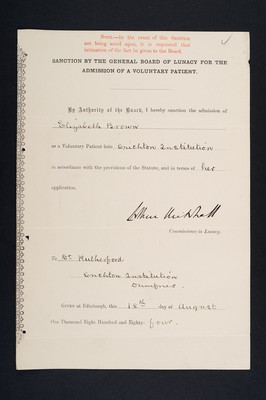 NOTE.—In the event of this Sanction
not being acted upon, it is requested that
intimation of the fact be given to the Board.
SANCTION BY THE GENERAL BOARD OF LUNACY FOR THE
ADMISSION OF A VOLUNTARY PATIENT.
By Authority of the Board, I hereby sanction the admission of
Elizabeth Brown
as a Voluntary Patient into Crichton Institution
in accordance with the provisions of the Statute, and in terms of her
application.
Arthur Mitchell
Commissioner in Lunacy.
To Dr. Rutherford
Crichton Institution
Dumfries
Given at Edinburgh, this day of August
One Thousand Eight Hundred and Eighty-four.